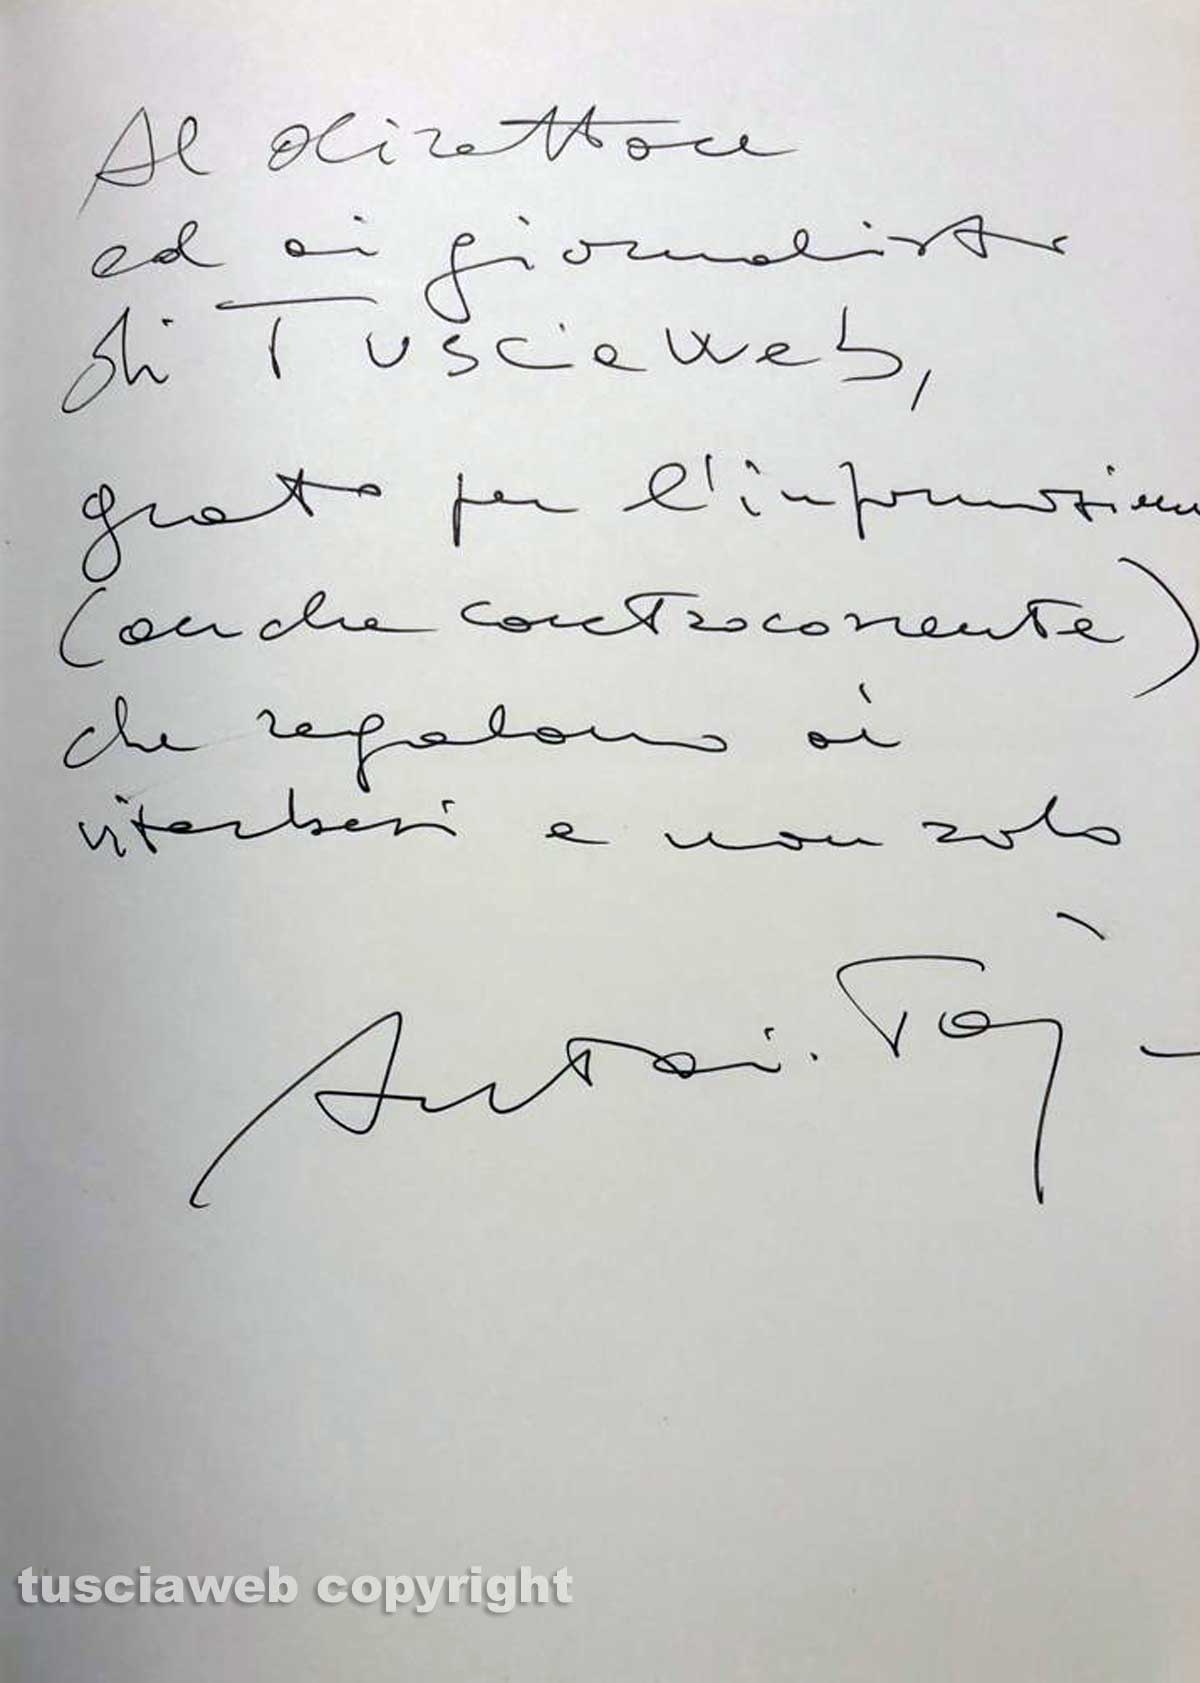 Al direttore
ed ai giornalisti
di Tusciaweb,
grato per l'informazione
(anche controcorrente)
che regalano ai
viterbesi e non solo
Antonio
tusciaweb copyright